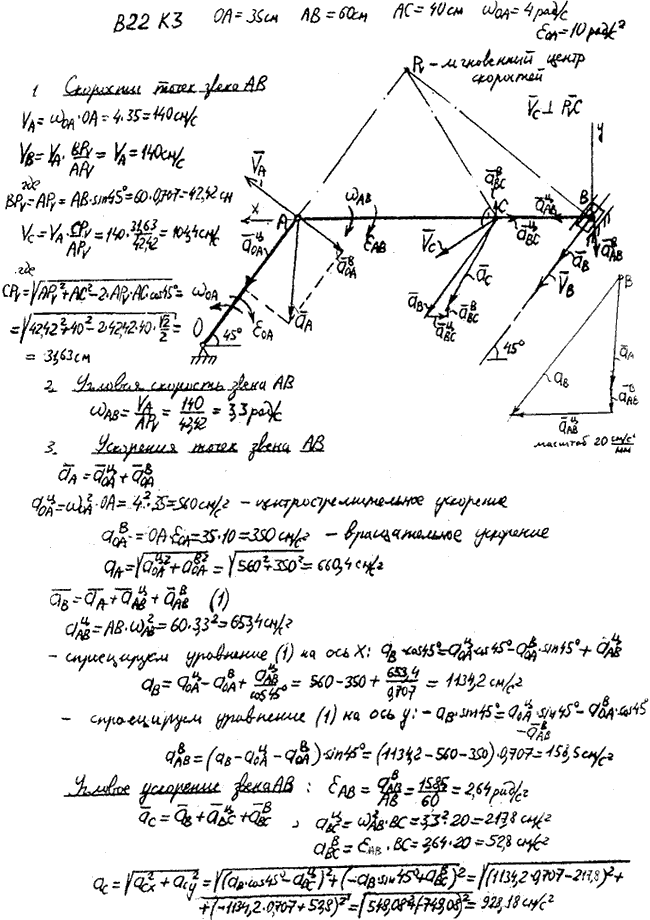 В22 К3 OA = 35см AB = 60см AC = 40см ω_OA = 4 рад/с
ε_OA = 10 рад/с²
P_V - мгновенный центр скоростей
V̄_C ⊥ P_V C
1. Скорости точек звена AB
V_A = ω_OA · OA = 4·35 = 140 см/с
V_B = V_A · BP_V/AP_V = V_A = 140 см/с
где
BP_V = AP_V = AB·sin45° = 60·0,707 = 42,42 см
V_C = V_A · CP_V/AP_V = 140 · 31,63/42,42 = 104,4 см/с
где
CP_V = √(AP_V² + AC² - 2·AP_V·AC·cos45°) =
= √(42,42² + 40² - 2·42,42·40·√2/2) =
= 31,63 см
V̄_A
ω_AB
ā^ц_OA
x
A
ε_AB
ā^в_OA
ω_OA
O
45°
ε_OA
ā_A
ā^в_BC
C
V̄_C
ā^ц_BC
ā_C
ā_B
ā^в_BC
ā^ц_BC
y
B
ā^ц_AB
ā^в_AB
ā_B
V̄_B
45°
B
ā_A
a_B
ā^в_AB
ā^ц_AB
масштаб 20 см/с²/мм
2. Угловая скорость звена AB
ω_AB = V_A/AP_V = 140/42,42 = 3,3 рад/с
3. Ускорения точек звена AB
ā_A = ā^ц_OA + ā^в_OA
a^ц_OA = ω²_OA · OA = 4²·35 = 560 см/с² - центростремительное ускорение
a^в_OA = OA·ε_OA = 35·10 = 350 см/с² - вращательное ускорение
a_A = √(a^ц_OA² + a^в_OA²) = √(560² + 350²) = 660,4 см/с²
ā_B = ā_A + ā^ц_AB + ā^в_AB (1)
a^ц_AB = AB·ω²_AB = 60·3,3² = 653,4 см/с²
- спроецируем уравнение (1) на ось X: a_B·cos45° = a^ц_OA·cos45° - a^в_OA·sin45° + a^ц_AB
a_B = a^ц_OA - a^в_OA + a^ц_AB/cos45° = 560 - 350 + 653,4/0,707 = 1134,2 см/с²
- спроецируем уравнение (1) на ось y: -a_B·sin45° = -a^ц_OA·sin45° - a^в_OA·cos45° - a^в_AB
a^в_AB = (a_B - a^ц_OA - a^в_OA)·sin45° = (1134,2 - 560 - 350)·0,707 = 158,5 см/с²
Угловое ускорение звена AB: ε_AB = a^в_AB/AB = 158,5/60 = 2,64 рад/с²
ā_C = ā_B + ā^ц_BC + ā^в_BC , a^ц_BC = ω²_AB·BC = 3,3²·20 = 217,8 см/с²
a^в_BC = ε_AB·BC = 2,64·20 = 52,8 см/с²
a_C = √(a_Cx² + a_Cy²) = √((a_B·cos45° - a^ц_BC)² + (-a_B·sin45° + a^в_BC)²) = √((1134,2·0,707 - 217,8)² +
+ (-1134,2·0,707 + 53,8)²) = √(548,08² + (749,08)²) = 928,18 см/с²